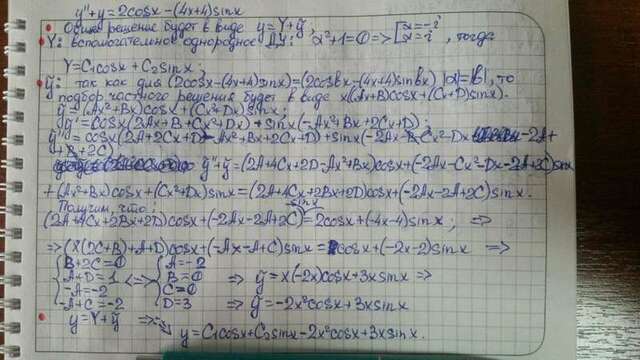 y''+y=2cosx-(4x+4)sinx
• Общее решение будет в виде y=Y+ỹ,
• Y: вспомогательное однородное ДУ: α²+1=0 => [α=-i α=i, тогда
Y=C₁cosx+C₂sinx;
• ỹ: так как для (2cosx-(4x+4)sinx)=(2cosbx-(4x+4)sinbx) |α|=|b|, то
подбор частного решения будет в виде x((Ax+B)cosx+(Cx+D)sinx).
ỹ=(Ax²+Bx)cosx+(Cx²+Dx)sinx;
ỹ'=cosx(2Ax+B+Cx²+Dx)+sinx(-Ax²-Bx+2Cx+D);
ỹ''=cosx(2A+2Cx+D-Ax²-Bx+2Cx+D)+sinx(-2Ax-B-Cx²-Dx -2A+
+B+2C)
ỹ''+ỹ=(2A+4Cx+2D-Ax²-Bx)cosx+(-2Ax-Cx²-Dx-2A+2C)sinx
+(Ax²+Bx)cosx+(Cx²+Dx)sinx=(2A+4Cx+2Bx+2D)cosx+(-2Ax-2A+2C)sinx.
Получим, что:
(2A+4Cx+2Bx+2D)cosx+(-2Ax-2A+2C)sinx=2cosx+(-4x-4)sinx; =>
=> (x(2C+B)+A+D)cosx+(-Ax-A+C)sinx=1cosx+(-2x-2)sinx =>
{B+2C=0 {A=-2
{A+D=1 <=> {B=0 => ỹ=x(-2x)cosx+3xsinx =>
{-A=-2 {C=0
{-A+C=-2 {D=3 => ỹ=-2x²cosx+3xsinx
• y=Y+ỹ => y=C₁cosx+C₂sinx-2x²cosx+3xsinx.